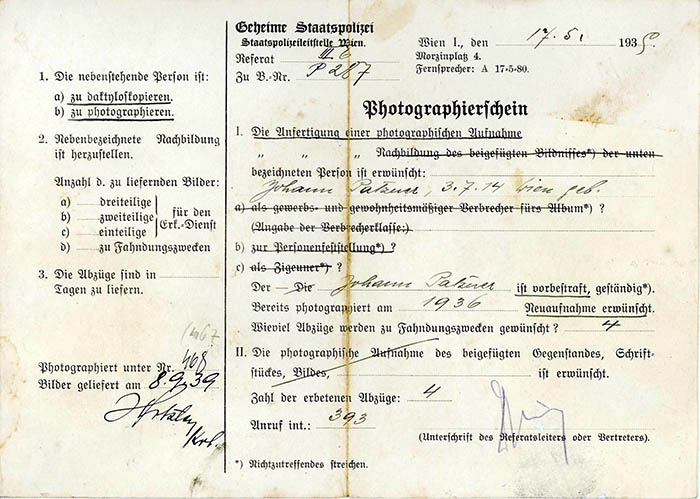 Geheime Staatspolizei
Staatspolizeileitstelle Wien.
Referat III E
Zu B.-Nr. P 287
Wien I., den 17.5. 1939.
Morzinplatz 4.
Fernsprecher: A 17-5-80.
1. Die nebenstehende Person ist:
a) zu daktyloskopieren.
b) zu photographieren.
2. Nebenbezeichnete Nachbildung
ist herzustellen.
Anzahl d. zu liefernden Bilder:
a) — dreiteilige
b) zweiteilige
c) einteilige
für den
Erk.-Dienst
d) zu Fahndungszwecken
3. Die Abzüge sind in
Tagen zu liefern.
Photographiert unter Nr. 468
Bilder geliefert am 8.9.39
Photographierschein
I. Die Anfertigung einer photographischen Aufnahme
" " " Nachbildung des beigefügten Bildnisses*) der unten
bezeichneten Person ist erwünscht:
Johann Patzner, 3.7.14 Wien geb.
a) als gewerbs- und gewohnheitsmäßiger Verbrecher fürs Album*) ?
(Angabe der Verbrecherklasse:)
b) zur Personenfeststellung*) ?
c) als Zigeuner*) ?
Der — Die Johann Patzner ist vorbestraft, geständig*).
Bereits photographiert am 1936 Neuaufnahme erwünscht.
Wieviel Abzüge werden zu Fahndungszwecken gewünscht ? 4
II. Die photographische Aufnahme des beigefügten Gegenstandes, Schrift-
stückes, Bildes, ist erwünscht.
Zahl der erbetenen Abzüge: 4
Anruf int.: 393
(Unterschrift des Referatsleiters oder Vertreters).
*) Nichtzutreffendes streichen.